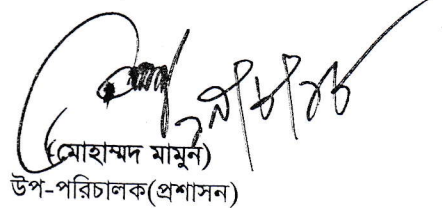 (মোহাম্মদ মামুন)
উপ-পরিচালক(প্রশাসন)